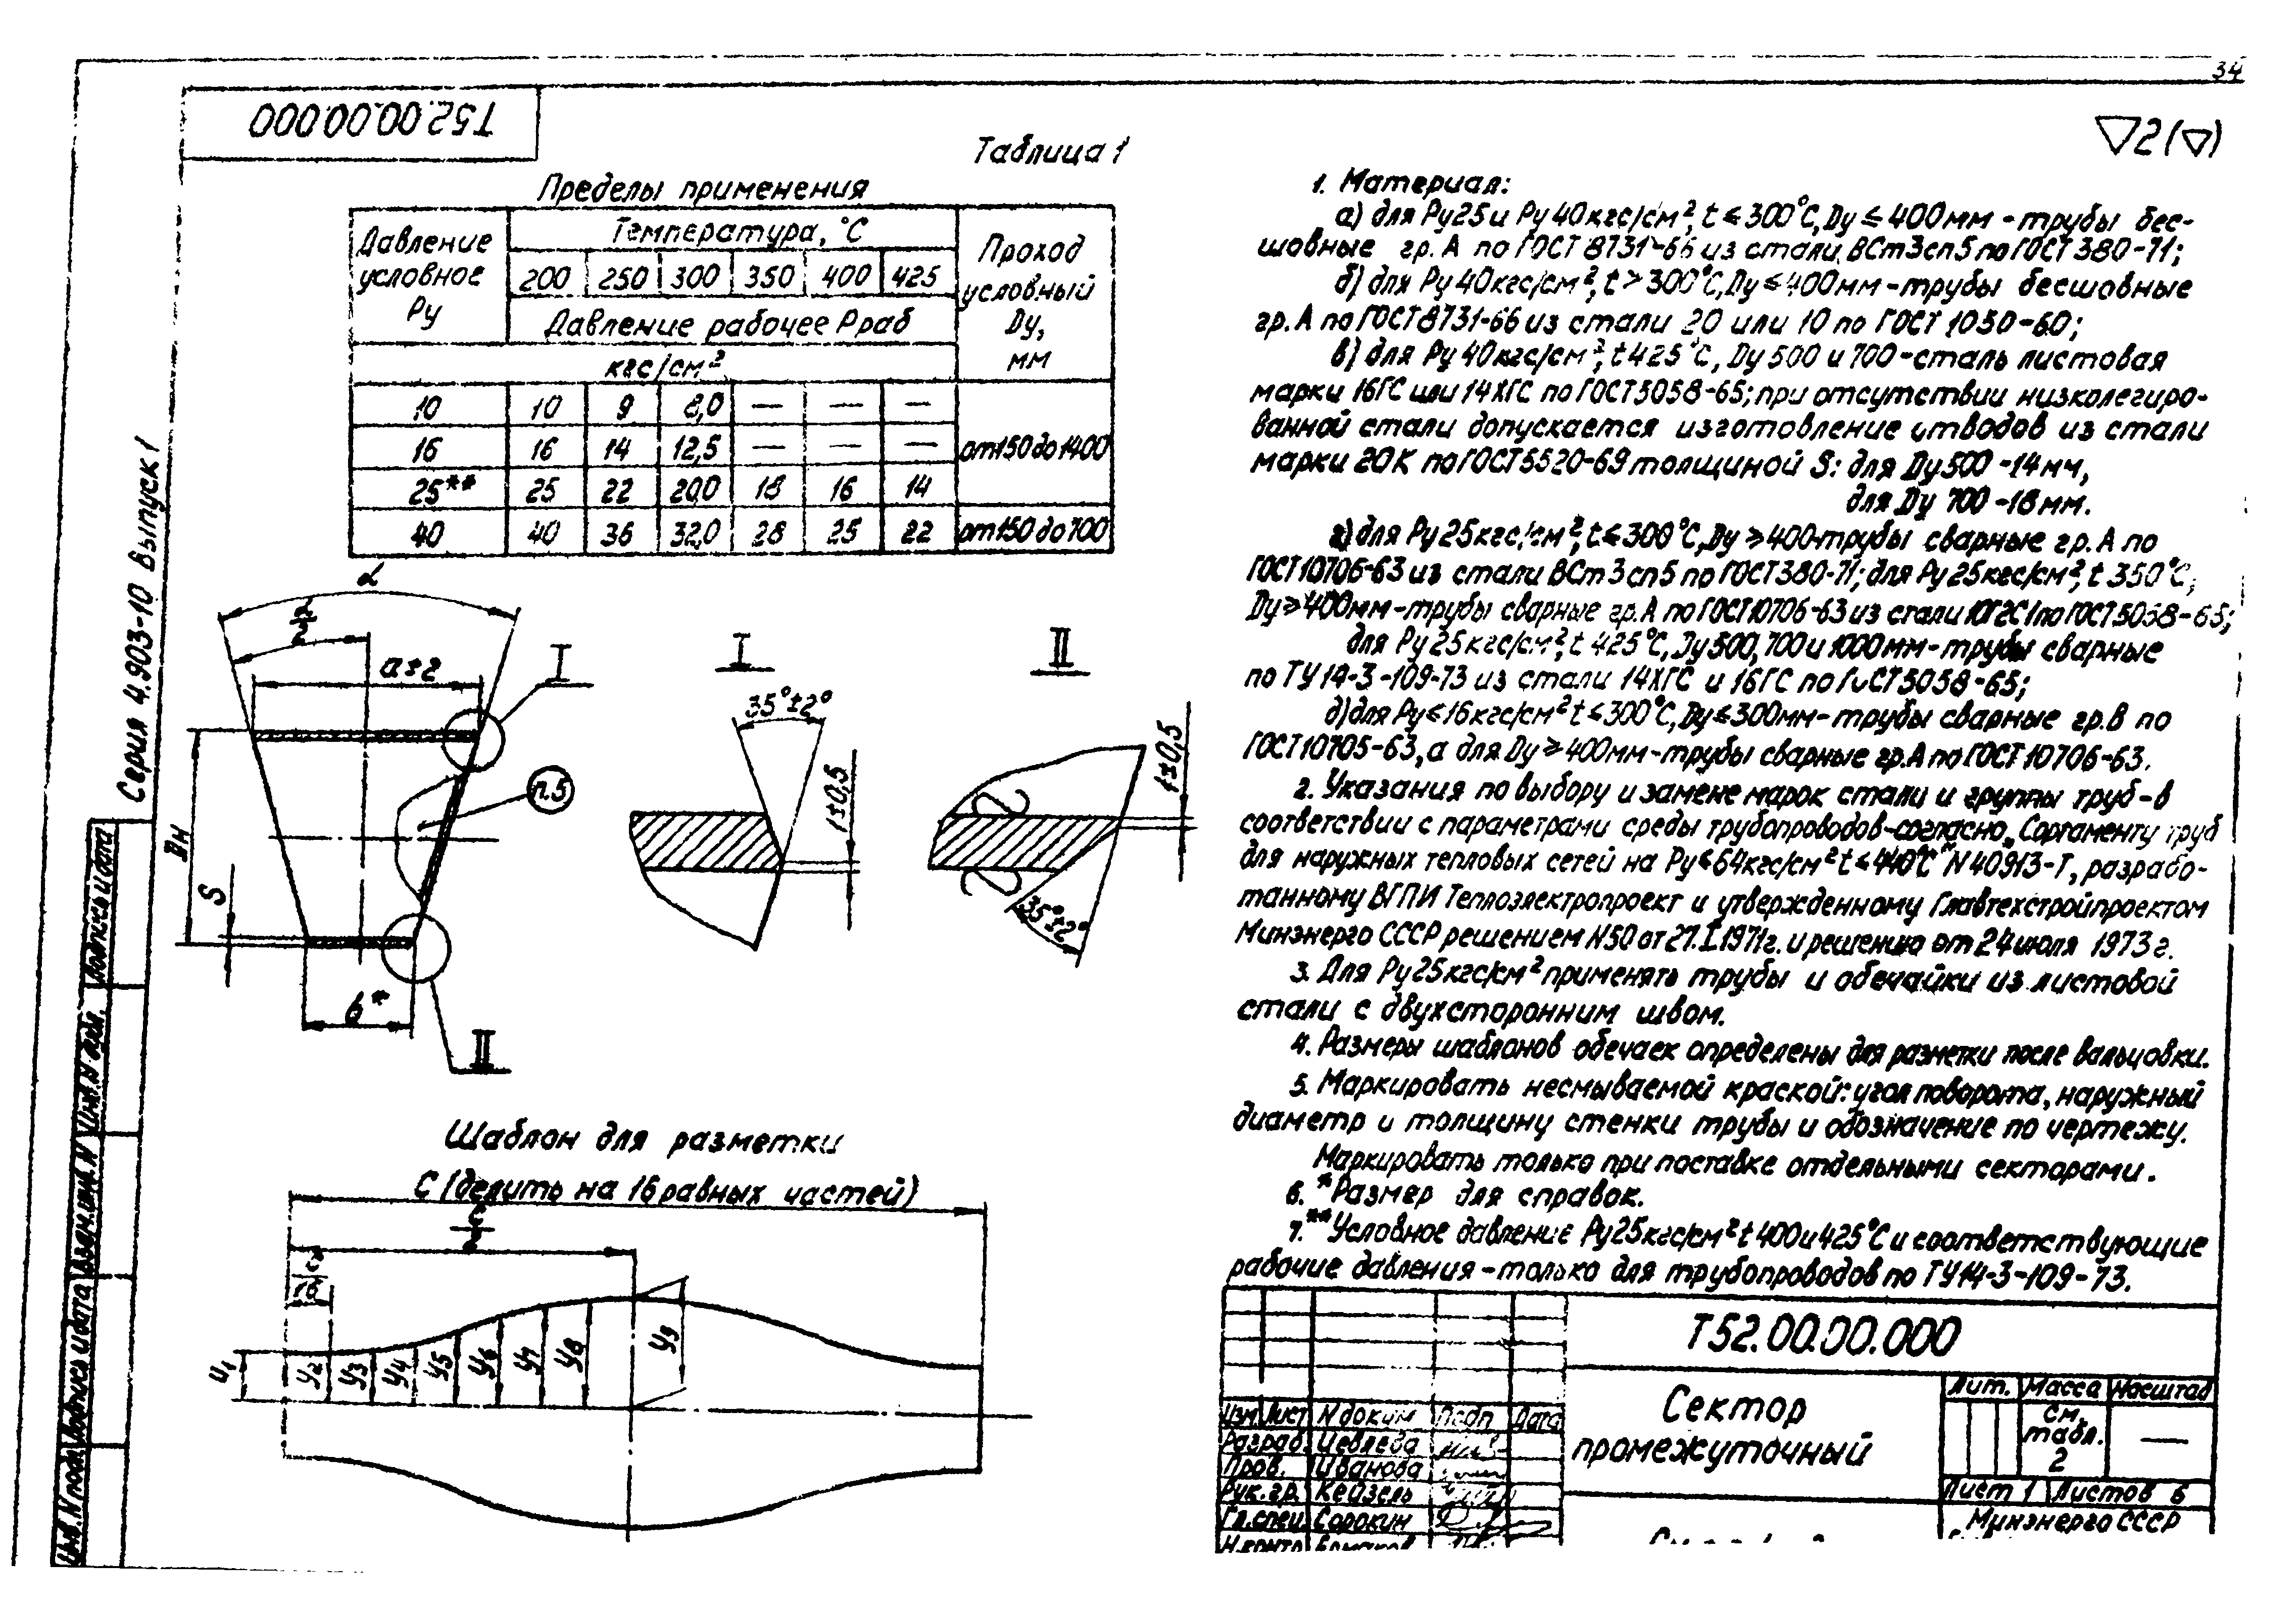 34
Т52.00.00.000
▽2(▽)
Таблица 1
Пределы применения
Давление условное Ру
Температура, °С
Проход условный Dу, мм
200 250 300 350 400 425
Давление рабочее Рраб
кгс/см²
10 10 9 8,0 — — —
16 16 14 12,5 — — —
от 150 до 1400
25** 25 22 20,0 18 16 14
40 40 36 32,0 28 25 22 от 150 до 700
Серия 4.903-10 Выпуск 1
α
α/2
а±2
I
п.5
Вн
S
в*
II
I
35°±2°
1±0,5
II
1±0,5
35°±2°
Шаблон для разметки
С (делить на 16 равных частей)
С/2
С/16
У1 У2 У3 У4 У5 У6 У7 У8 У9
1. Материал:
а) для Ру25 и Ру 40кгс/см², t ≤ 300°С, Dу ≤ 400мм - трубы бес-
шовные гр. А по ГОСТ 8731-66 из стали ВСт3сп5 по ГОСТ 380-71;
б) для Ру 40кгс/см², t > 300°С, Dу ≤ 400мм - трубы бесшовные
гр. А по ГОСТ 8731-66 из стали 20 или 10 по ГОСТ 1050-60;
в) для Ру 40кгс/см², t 425°С, Dу 500 и 700 - сталь листовая
марки 16ГС или 14ХГС по ГОСТ 5058-65; при отсутствии низколегиро-
ванной стали допускается изготовление отводов из стали
марки 20К по ГОСТ 5520-69 толщиной S: для Dу 500 - 14мм,
для Dу 700 - 18 мм.
г) для Ру 25кгс/см², t ≤ 300°С, Dу ≥ 400-трубы сварные гр. А по
ГОСТ 10706-63 из стали ВСт3сп5 по ГОСТ 380-71; для Ру 25кгс/см², t 350°С,
Dу ≥ 400мм - трубы сварные гр. А по ГОСТ 10706-63 из стали 10Г2С1 по ГОСТ 5058-65;
для Ру 25кгс/см², t 425°С, Dу 500, 700 и 1000 мм - трубы сварные
по ТУ 14-3-109-73 из стали 14ХГС и 16ГС по ГОСТ 5058-65;
д) для Ру ≤ 16кгс/см² t ≤ 300°С, Dу ≤ 300мм - трубы сварные гр. В по
ГОСТ 10705-63, а для Dу ≥ 400мм - трубы сварные гр. А по ГОСТ 10706-63.
2. Указания по выбору и замене марок стали и группы труб - в
соответствии с параметрами среды трубопроводов - согласно „Сортаменту труб
для наружных тепловых сетей на Ру ≤ 64кгс/см² t ≤ 440°С" N 40913-Т, разрабо-
танному ВГПИ Теплоэлектропроект и утвержденному Главтехстройпроектом
Минэнерго СССР решением N50 от 27.I.1971г. и решению от 24 июля 1973 г.
3. Для Ру 25кгс/см² применять трубы и обечайки из листовой
стали с двухсторонним швом.
4. Размеры шаблонов обечаек определены для разметки после вальцовки.
5. Маркировать несмываемой краской: угол поворота, наружный
диаметр и толщину стенки трубы и обозначение по чертежу.
Маркировать только при поставке отдельными секторами.
6. *Размер для справок.
7. **Условное давление Ру 25кгс/см² t 400 и 425°С и соответствующие
рабочие давления - только для трубопроводов по ТУ 14-3-109-73.
Т52.00.00.000
Сектор промежуточный
Лит. Масса Масштаб
См. табл. 2 —
Лист 1 Листов 6
Минэнерго СССР
Изм. Лист N докум Подп Дата
Разраб.
Пров. Иванова
Рук. гр. Кейзель
Гл. спец. Сорокин
Н.контр.
Подпись и дата
Инв. N дубл.
Взам. инв. N
Подпись и дата
Инв. N подл.